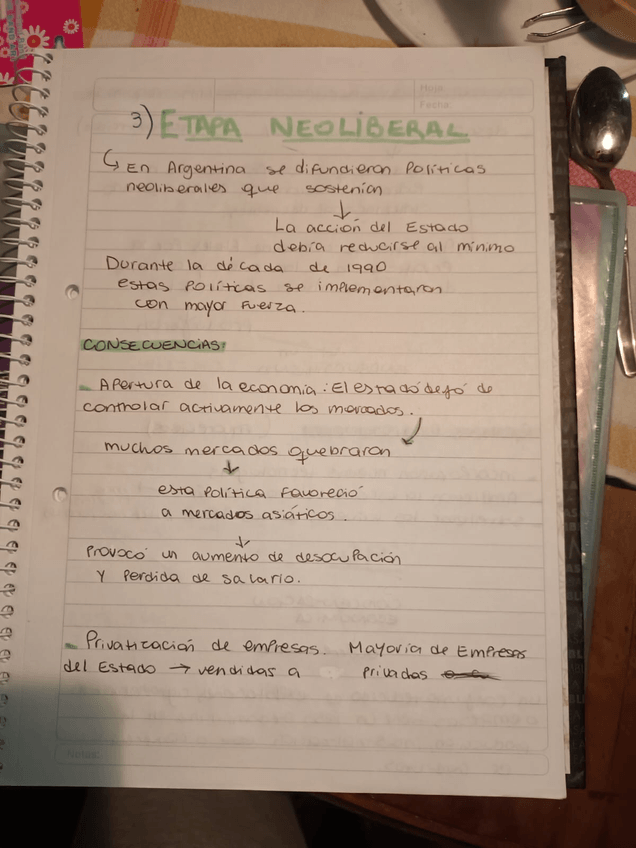 Hoja:
Fecha:
3) ETAPA NEOLIBERAL
En Argentina se difundieron Políticas
neoliberales que sostenian
La acción del Estado
debía reducirse al mínimo
Durante la década de 1990
estas Políticas se implementaron
con mayor fuerza.
CONSECUENCIAS:
- Apertura de la economía: El estado dejó de
controlar activamente los mercados.
muchos mercados quebraron
esta Política favoreció
a mercados asiáticos.
Provocó un aumento de desocupación
y perdida de salario.
- Privatización de empresas. Mayoria de Empresas
del Estado → vendidas a privados
Notas: